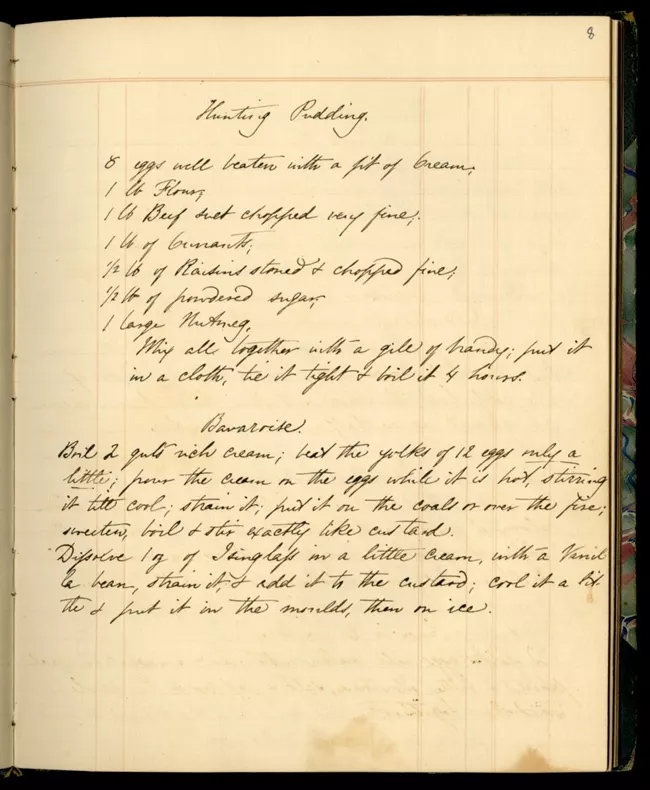 8
Hunting Pudding.
8 eggs well beaten with a pt of Cream,
1 lb Flour;
1 lb Beef suet chopped very fine;
1 lb of Currants;
1/2 lb of Raisins stoned & chopped fine;
1/2 lb of powdered sugar;
1 large Nutmeg,
Mix all together with a gill of brandy; put it
in a cloth, tie it tight & boil it 4 hours.
Bavaroise.
Boil 2 qts rich cream; beat the yolks of 12 eggs only a
little; pour the cream on the eggs while it is hot, stirring
it till cool; strain it; put it on the coals or over the fire;
sweeten, boil & stir exactly like custard.
Dissolve 1 oz of Isinglass in a little cream, with a Vanil
la bean, strain it, & add it to the custard; cool it a lit-
tle & put it in the moulds, then on ice.